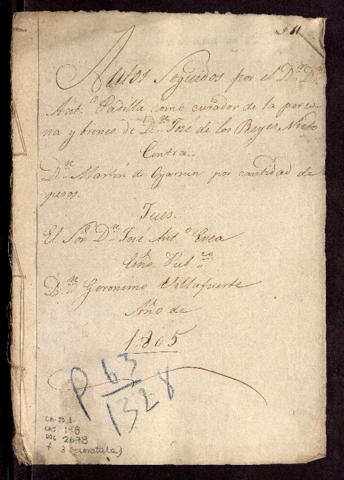 Autos Seguidos por el D.r D.n
Ant.o Padilla como curador de la perso
na y bienes de D.n José de los Reyes Nieto
Contra
D.n Martin de Oyarzun por cantidad de
pesos.
Jues.
El Sor D.n José Ant.o
Esno Pub.co
D.n Geronimo Villafuerte
Año de
1805
P 63
1328
CA-JO 1
CAJ 148
DOC 2678
f 3 (+caratula)